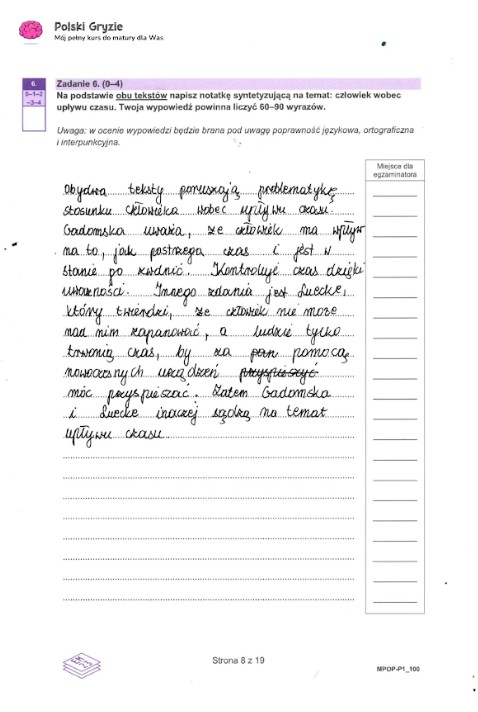 Polski Gryzie
Mój pełny kurs do matury dla Was
6.
0–1–2
–3–4
Zadanie 6. (0–4)
Na podstawie obu tekstów napisz notatkę syntetyzującą na temat: człowiek wobec
upływu czasu. Twoja wypowiedź powinna liczyć 60–90 wyrazów.
Uwaga: w ocenie wypowiedzi będzie brana pod uwagę poprawność językowa, ortograficzna
i interpunkcyjna.
Miejsce dla
egzaminatora
Obydwa teksty poruszają problematykę
stosunku człowieka wobec upływu czasu.
Gadomska uważa, że człowiek ma wpływ
na to, jak postrzega czas i jest w
stanie po
Kontroluje czas dzięki
uważności. Innego zdania jest Luecke,
który twierdzi, że człowiek nie może
nad nim zapanować, a ludzie tylko
trwonią czas, by za pan pomocą
nowoczesnych urządzeń przyspieszyć
móc przyspieszać. Zatem Gadomska
i Luecke inaczej sądzą na temat
upływu czasu.
Strona 8 z 19
MPOP-P1_100